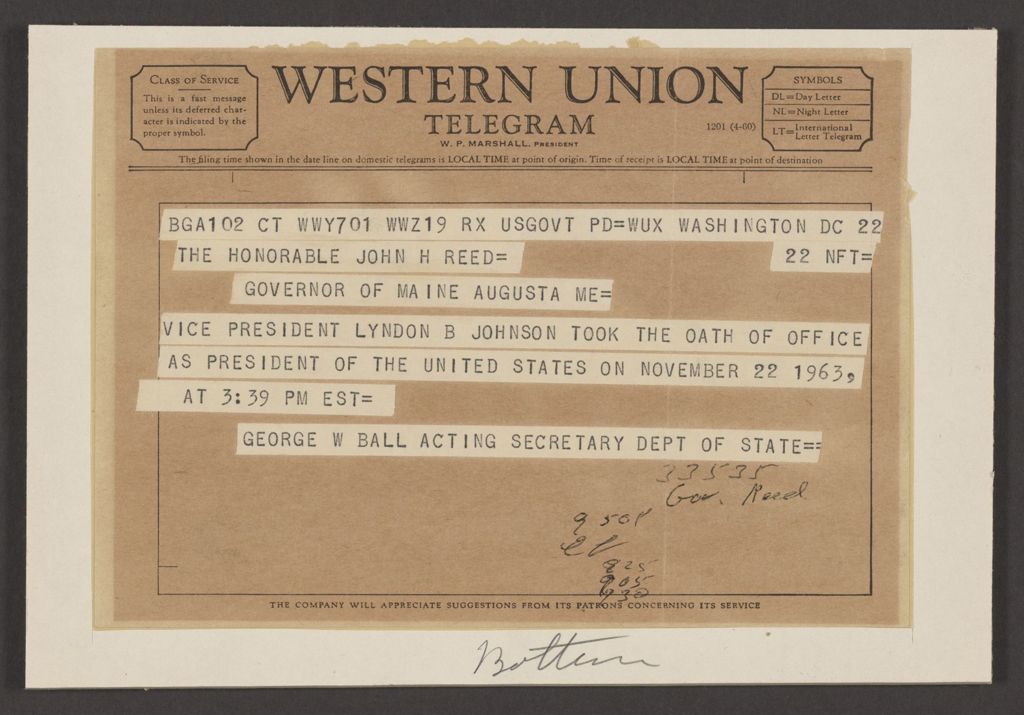 CLASS OF SERVICE
This is a fast message
unless its deferred char-
acter is indicated by the
proper symbol.
WESTERN UNION
TELEGRAM
W. P. MARSHALL, PRESIDENT
1201 (4-60)
SYMBOLS
DL=Day Letter
NL=Night Letter
LT=International Letter Telegram
The filing time shown in the date line on domestic telegrams is LOCAL TIME at point of origin. Time of receipt is LOCAL TIME at point of destination
BGA102 CT WWY701 WWZ19 RX USGOVT PD=WUX WASHINGTON DC 22
THE HONORABLE JOHN H REED= 22 NFT=
GOVERNOR OF MAINE AUGUSTA ME=
VICE PRESIDENT LYNDON B JOHNSON TOOK THE OATH OF OFFICE
AS PRESIDENT OF THE UNITED STATES ON NOVEMBER 22 1963,
AT 3:39 PM EST=
GEORGE W BALL ACTING SECRETARY DEPT OF STATE==
33535
Gov. Reed
9 50P
825
905
930
THE COMPANY WILL APPRECIATE SUGGESTIONS FROM ITS PATRONS CONCERNING ITS SERVICE
Bottom